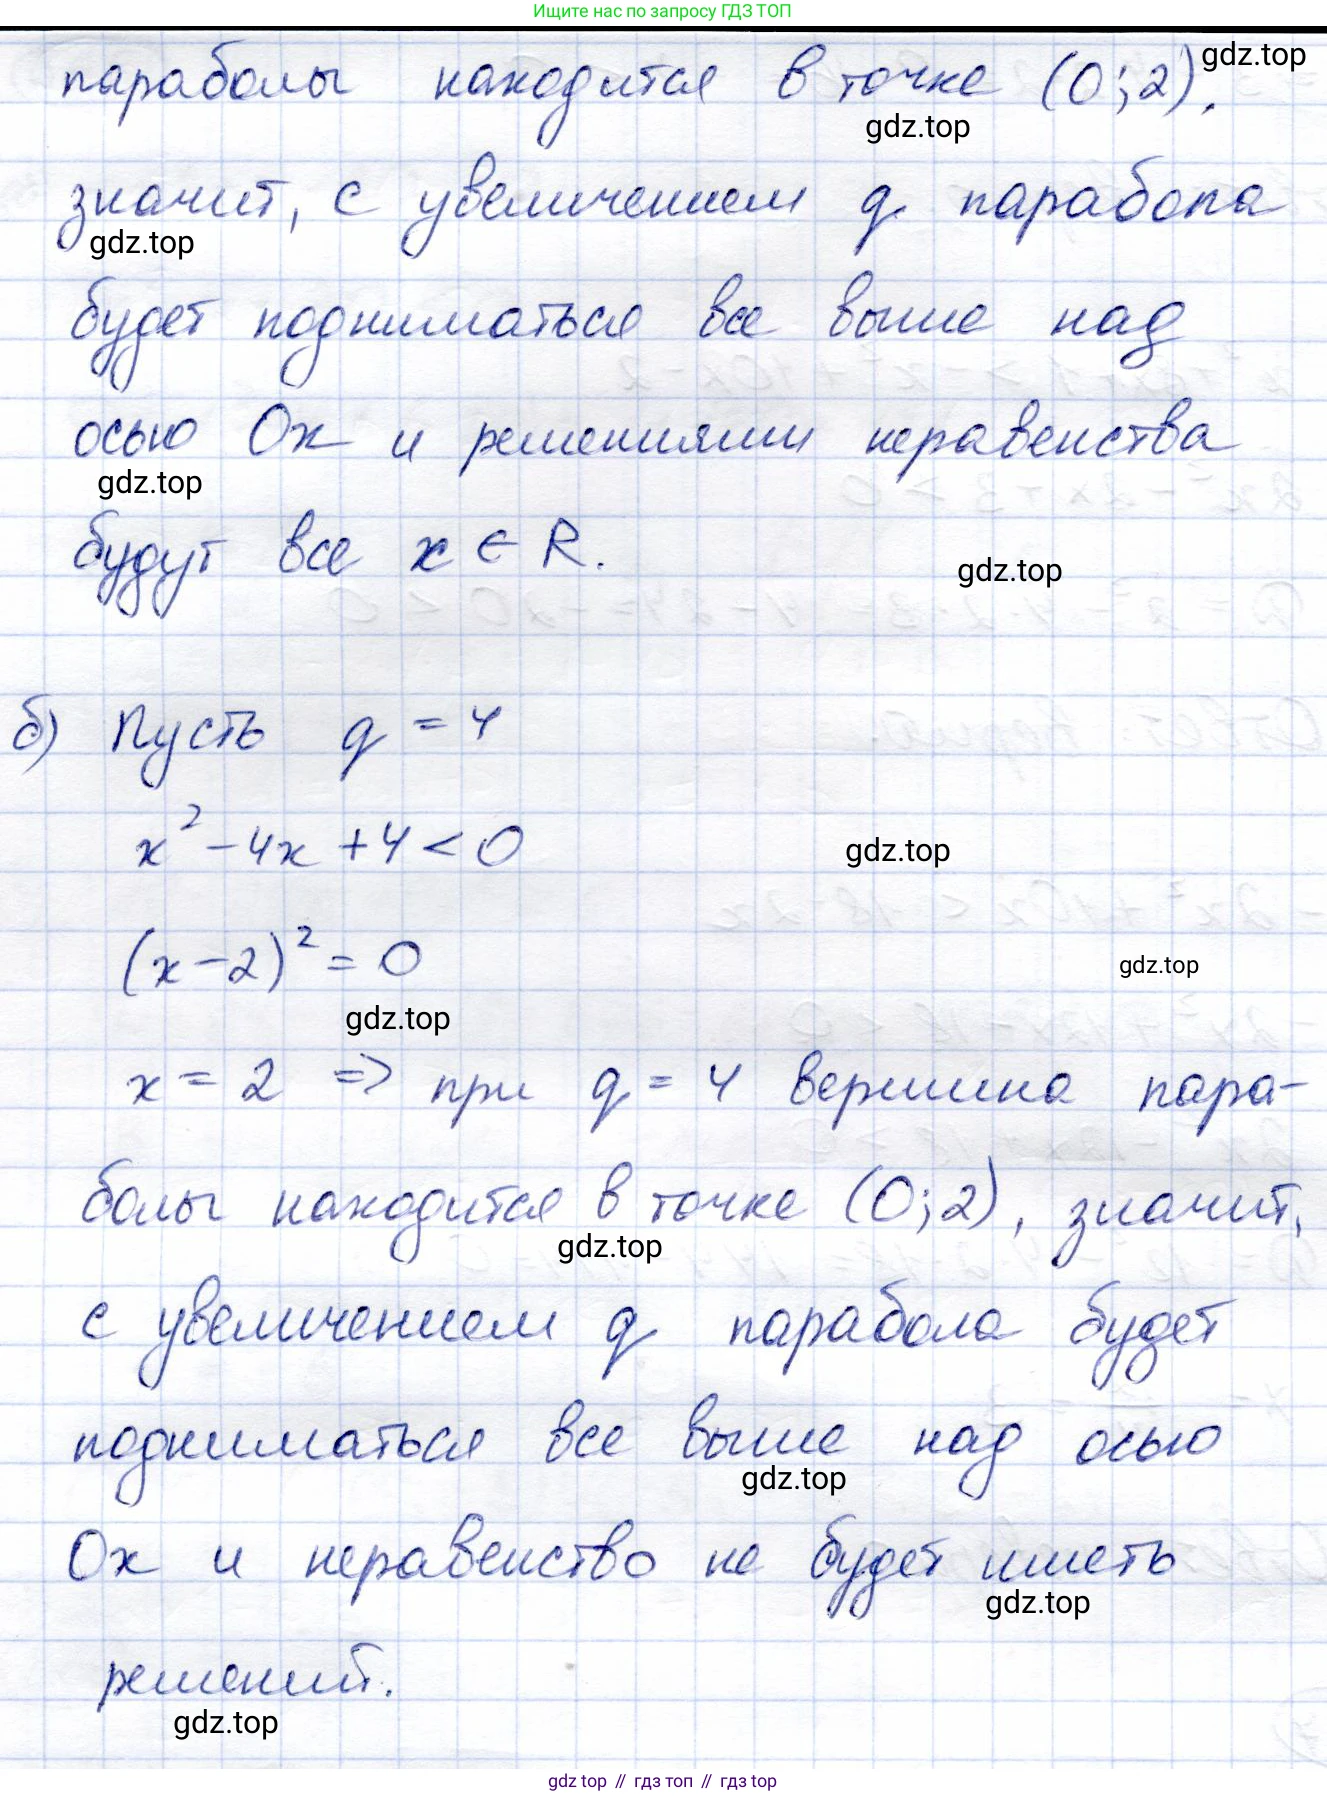 Ищите нас по запросу ГДЗ ТОП
параболы находится в точке (0;2).
gdz.top
gdz.top
значит, с увеличением q парабола
gdz.top
будет подниматься все выше над
осью Ох и решениями неравенства
gdz.top
будут все x ∈ R.
gdz.top
б) Пусть q = 4
x² - 4x + 4 < 0
gdz.top
(x - 2)² = 0
gdz.top
gdz.top
x = 2 => при q = 4 вершина пара-
болы находится в точке (0;2), значит,
gdz.top
с увеличением q парабола будет
подниматься все выше над осью
gdz.top
Ох и неравенство не будет иметь
gdz.top
решений.
gdz.top
gdz top // гдз топ // gdz top